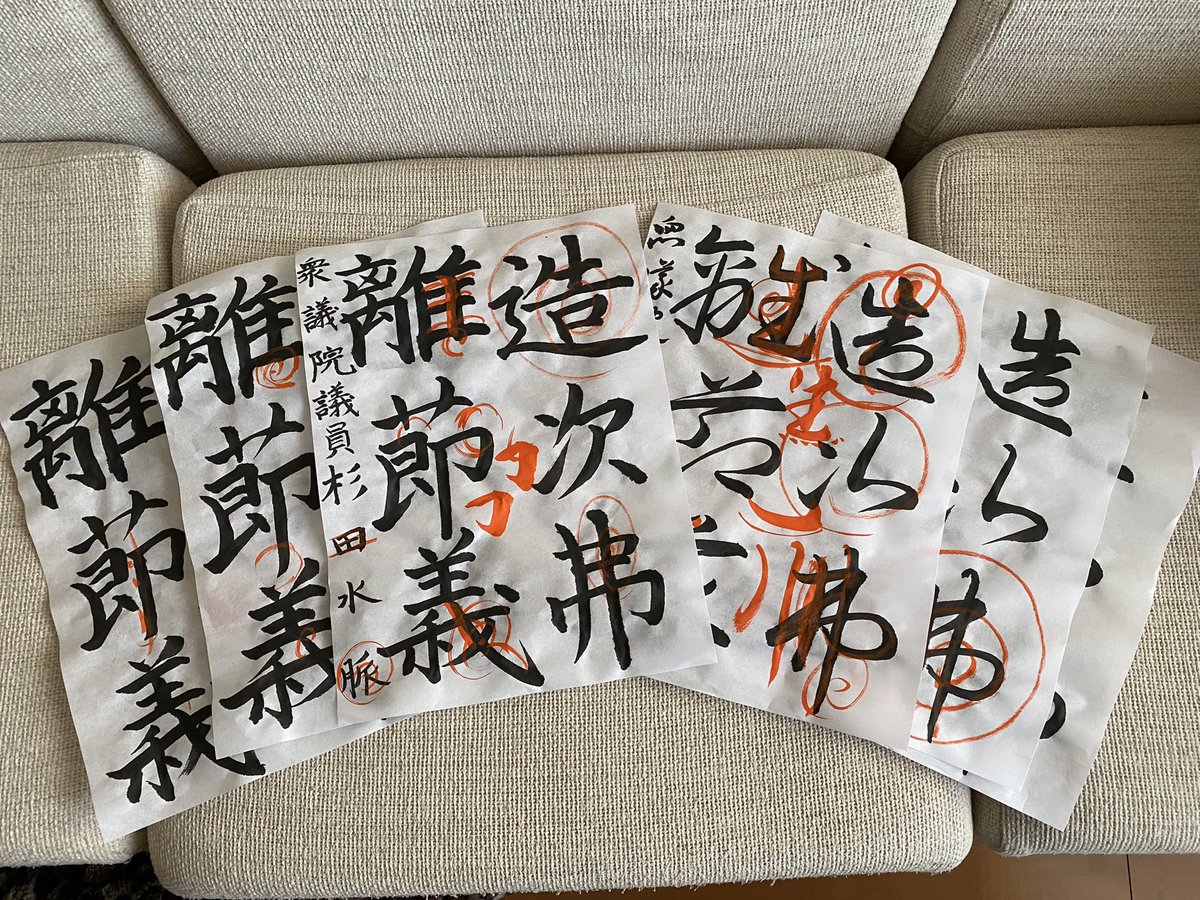 造次弗
造次弗
離節
造次弗
離節義
衆議院議員杉田水脈
離節義
離節義